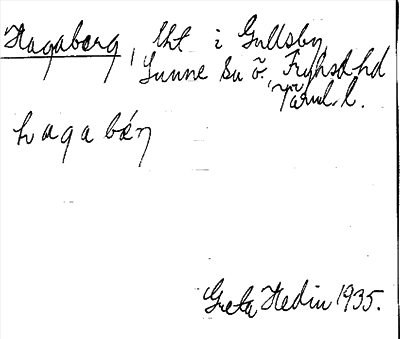 Hagaberg, lht i Gullsby,
Sunne sn ö. Fryksd. hd
Värml. l.
hagabǽrj
Greta Hedin 1935.